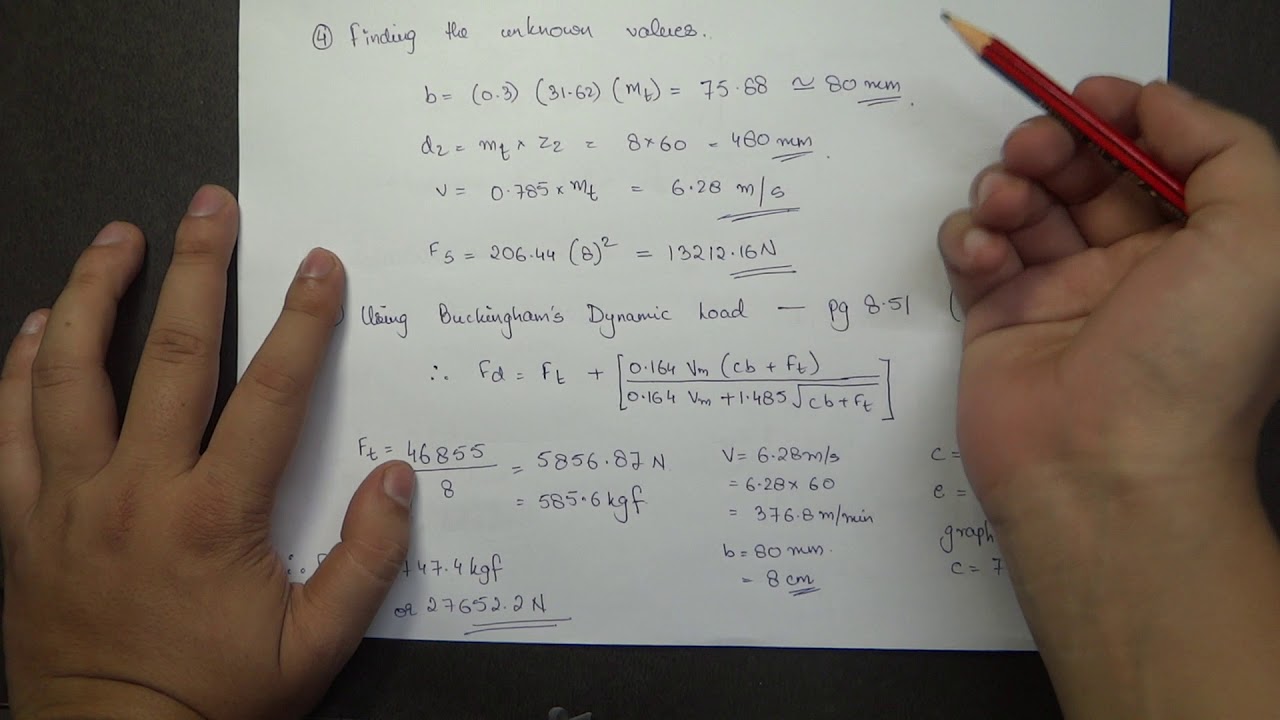 ④ Finding the unknown values.
b = (0.3) (31.62) (mt) = 75.88 ≃ 80 mm.
d2 = mt × Z2 = 8×60 = 480 mm.
v = 0.785 × mt = 6.28 m/s
Fs = 206.44 (8)² = 13212.16N
Using Buckingham's Dynamic Load — pg 8.51 (
∴ Fd = Ft + [0.164 Vm (cb + Ft) / 0.164 Vm + 1.485√cb + Ft]
Ft = 46855 / 8 = 5856.87 N
= 585.6 kgf
747.4 kgf
or 27652.2 N
V = 6.28 m/s
= 6.28 × 60
= 376.8 m/min
b = 80 mm.
= 8 cm
c =
e =
graph
c = 7